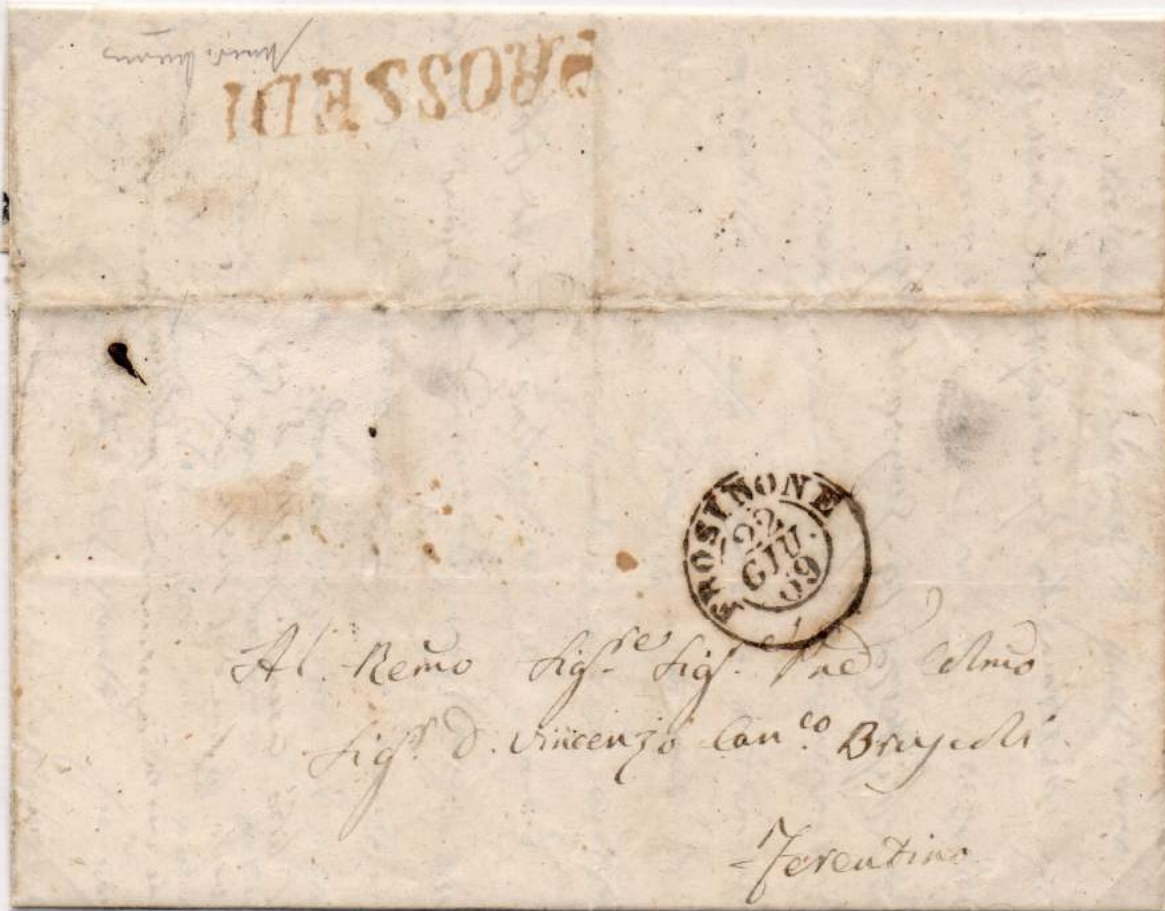 PROSSEDI
FROSINONE
22
GIU.
59
Al Remo Sigr. Sigr. Pne
Sigr. D. Vincenzo Canco
Ferentino